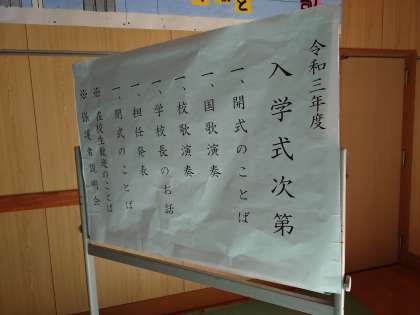 令和三年度
入学式次第
一、開式のことば
一、国歌演奏
一、校歌演奏
一、学校長のお話
一、担任発表
一、閉式のことば
※ 在校生歓迎のことば
※ 保護者説明会